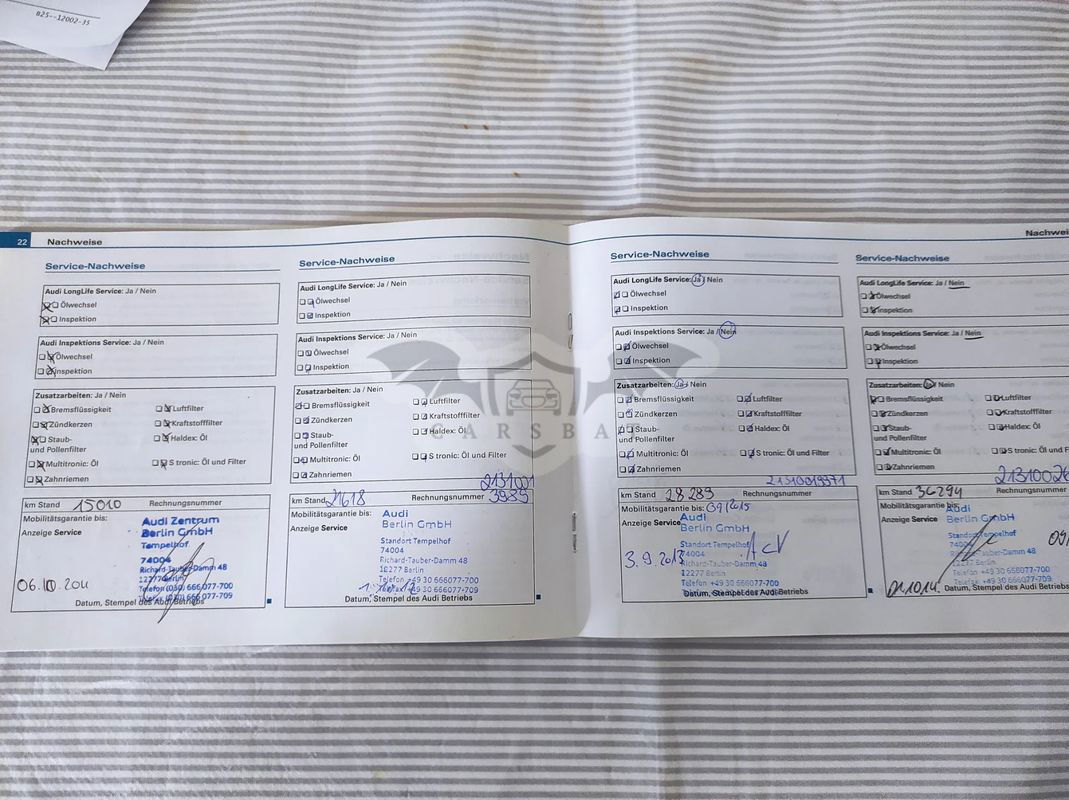 825--12002-35
22 Nachweise
Service-Nachweise
Audi LongLife Service: Ja / Nein
Ölwechsel
Inspektion
Audi Inspektions Service: Ja / Nein
Ölwechsel
Inspektion
Zusatzarbeiten: Ja / Nein
Bremsflüssigkeit
Luftfilter
Zündkerzen
Kraftstofffilter
Staub-
und Pollenfilter
Haldex: Öl
Multitronic: Öl
S tronic: Öl und Filter
Zahnriemen
km Stand 15010 Rechnungsnummer
Mobilitätsgarantie bis:
Anzeige Service
Audi Zentrum
Berlin GmbH
Tempelhof
74004
Richard-Tauber-Damm 48
12277 Berlin
Telefon (030) 666077-700
Telefax (030) 666077-709
06.10.2011
Datum, Stempel des Audi Betriebs
Service-Nachweise
Audi LongLife Service: Ja / Nein
Ölwechsel
Inspektion
Audi Inspektions Service: Ja / Nein
Ölwechsel
Inspektion
Zusatzarbeiten: Ja / Nein
Bremsflüssigkeit
Luftfilter
Zündkerzen
Kraftstofffilter
Staub-
und Pollenfilter
Haldex: Öl
Multitronic: Öl
S tronic: Öl und Filter
Zahnriemen
km Stand 21618 Rechnungsnummer
Mobilitätsgarantie bis:
Anzeige Service
Audi
Berlin GmbH
Standort Tempelhof
74004
Richard-Tauber-Damm 48
12277 Berlin
Telefon +49 30 666077-700
+49 30 666077-709
Datum, Stempel des Audi Betriebs
CARSBAT
Service-Nachweise
Audi LongLife Service: Ja / Nein
Ölwechsel
Inspektion
Audi Inspektions Service: Ja / Nein
Ölwechsel
Inspektion
Zusatzarbeiten: Ja / Nein
Bremsflüssigkeit
Luftfilter
Zündkerzen
Kraftstofffilter
Staub-
und Pollenfilter
Haldex: Öl
Multitronic: Öl
S tronic: Öl und Filter
Zahnriemen
km Stand 28289 Rechnungsnummer
Mobilitätsgarantie bis: 09/2015
Anzeige Service
Audi
Berlin GmbH
Standort Tempelhof
74004
Richard-Tauber-Damm 48
12277 Berlin
Telefon +49 30 666077-700
Telefax +49 30 666077-709
3.9.2013
Datum, Stempel des Audi Betriebs
Nachwei
Service-Nachweise
Audi LongLife Service: Ja / Nein
Ölwechsel
Inspektion
Audi Inspektions Service: Ja / Nein
Ölwechsel
Inspektion
Zusatzarbeiten: Ja / Nein
Bremsflüssigkeit
Luftfilter
Zündkerzen
Kraftstofffilter
Staub-
und Pollenfilter
Haldex: Öl
Multitronic: Öl
S tronic: Öl und Filter
Zahnriemen
km Stand 36294 Rechnungsnummer
Mobilitätsgarantie bis:
Anzeige Service
Audi
Berlin GmbH
Standort Tempelhof
Tauber-Damm 48
12277 Berlin
Telefon +49 30 666077-700
Telefax +49 30 666077-709
01.10.14
Datum, Stempel des Audi Betriebs